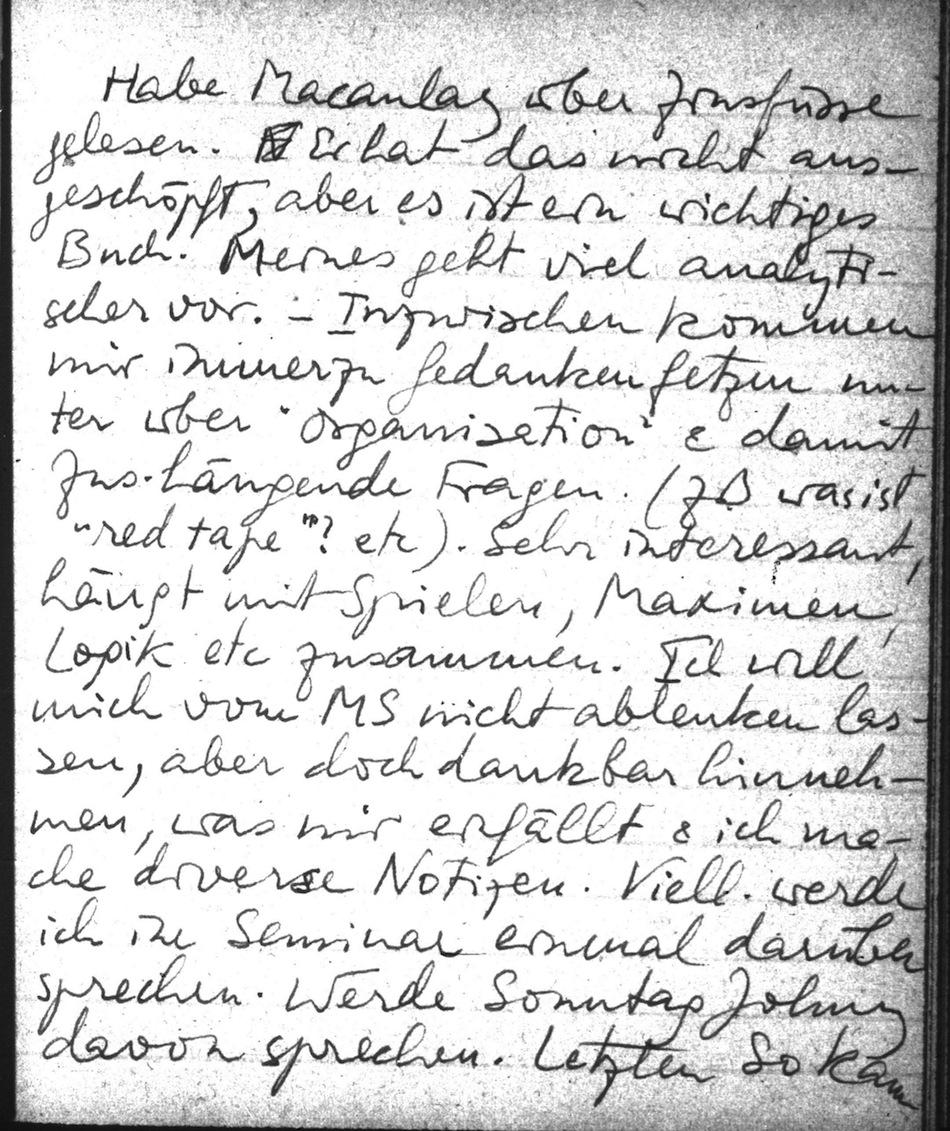 Habe Macaulay über Zinsfüsse
gelesen. Er hat das nicht aus-
geschöpft, aber es ist ein wichtiges
Buch. Meines geht viel analyti-
scher vor. – Inzwischen kommen
mir immerzu Gedankenfetzen un-
ter über "Organization" & damit
zus.hängende Fragen. (zB was ist
"red tape"? etc). Sehr interessant,
hängt mit Spielen, Maximen,
Logik etc zusammen. Ich will
mich vom MS nicht ablenken las-
sen, aber doch dankbar hinneh-
men, was mir einfällt & ich ma-
che diverse Notizen. Viell. werde
ich im Seminar einmal darüber
sprechen. Werde Sonntag Johnny
davon sprechen. Letzten So kam